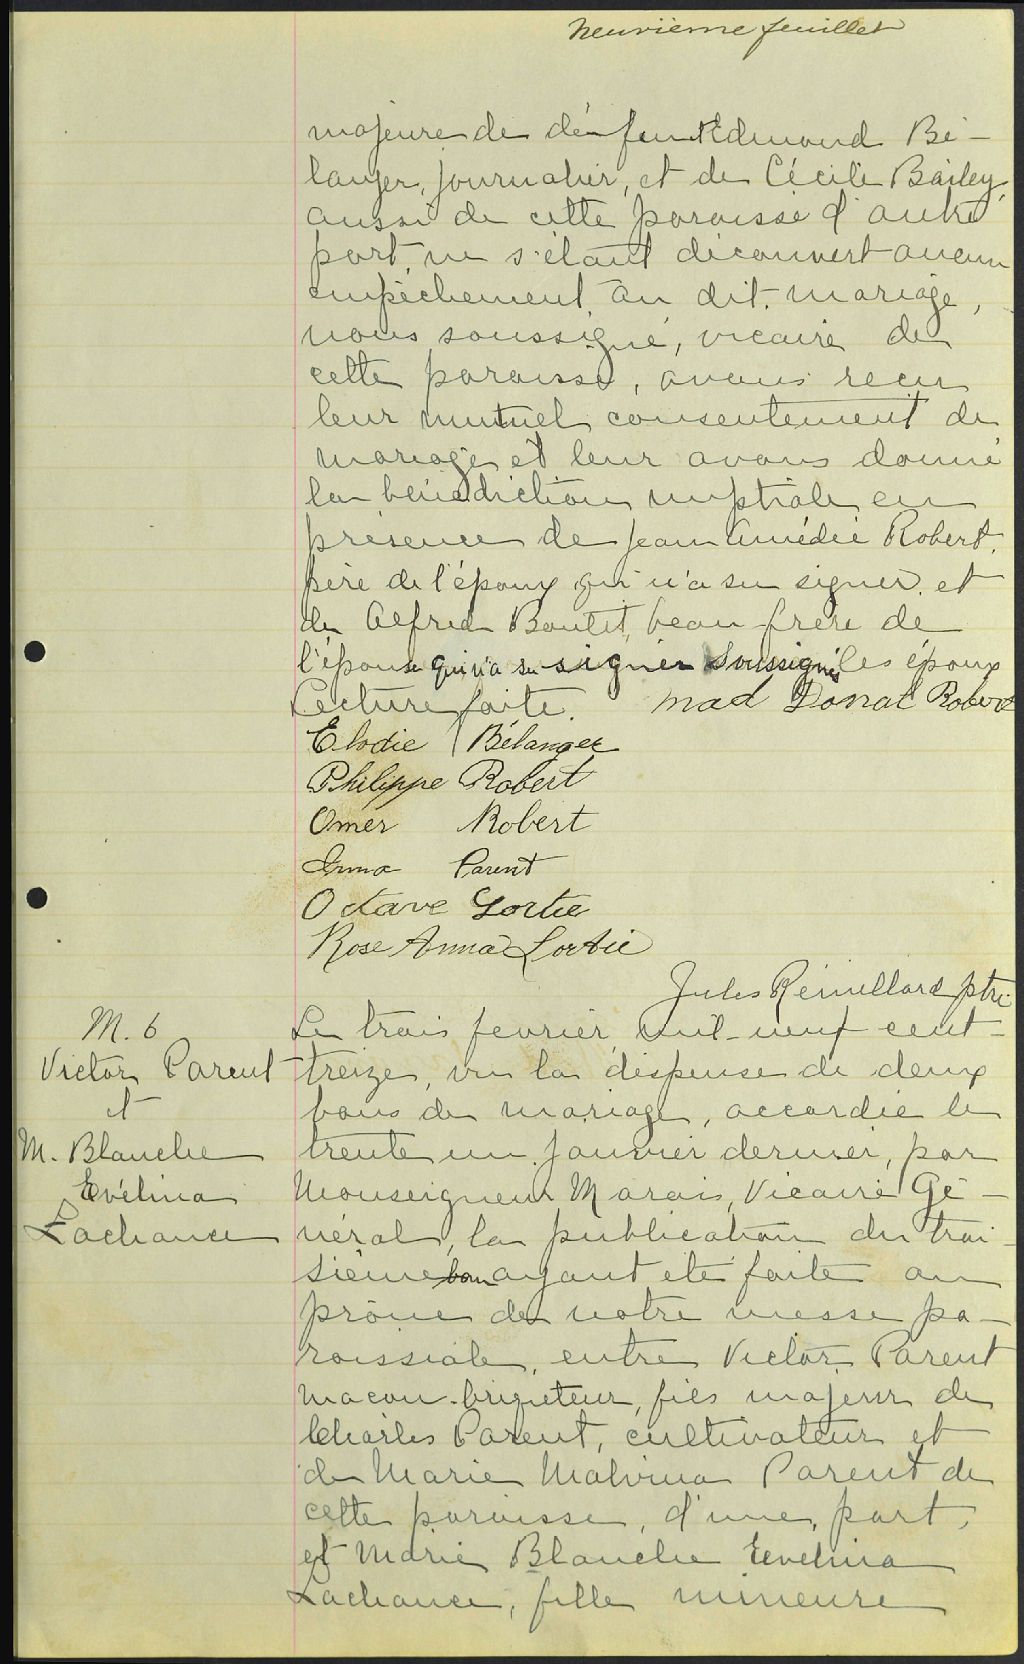 Neuvième feuillet
majeure de défunt Edmond Bé-
langer, journalier, et de Cécile Bailey,
aussi de cette paroisse d'autre
part, ne s'étant découvert aucun
empêchement au dit mariage,
nous soussigné, vicaire de
cette paroisse, avons reçu
leur mutuel consentement de
mariage et leur avons donné
la bénédiction nuptiale en
présence de Jean Amédée Robert,
père de l'époux qui n'a su signer et
de Alfred Boutet, beau frère de
l'épouse qui n'a su signer soussignés les époux
Lecture faite. Mad Donat Robert
Elodie Bélanger
Philippe Robert
Omer Robert
Irma Parent
Octave Lortie
Rose Anna Lortie
Jules Rémillard ptre
M. 6
Victor Parent
et
M. Blanche
Evélina
Lachance
Le trois fevrier mil-neuf cent-
treize, vu la dispense de deux
bans de mariage, accordée le
trente un janvier dernier, par
Monseigneur Marois, Vicaire Gé-
néral, la publication du troi-
sième ban ayant été faite au
prône de notre messe pa-
roissiale, entre Victor Parent
macon-briqueteur, fils majeur de
Charles Parent, cultivateur et
de Marie Malvina Parent de
cette paroisse, d'une part,
et Marie Blanche Eevelina
Lachance, fille mineure